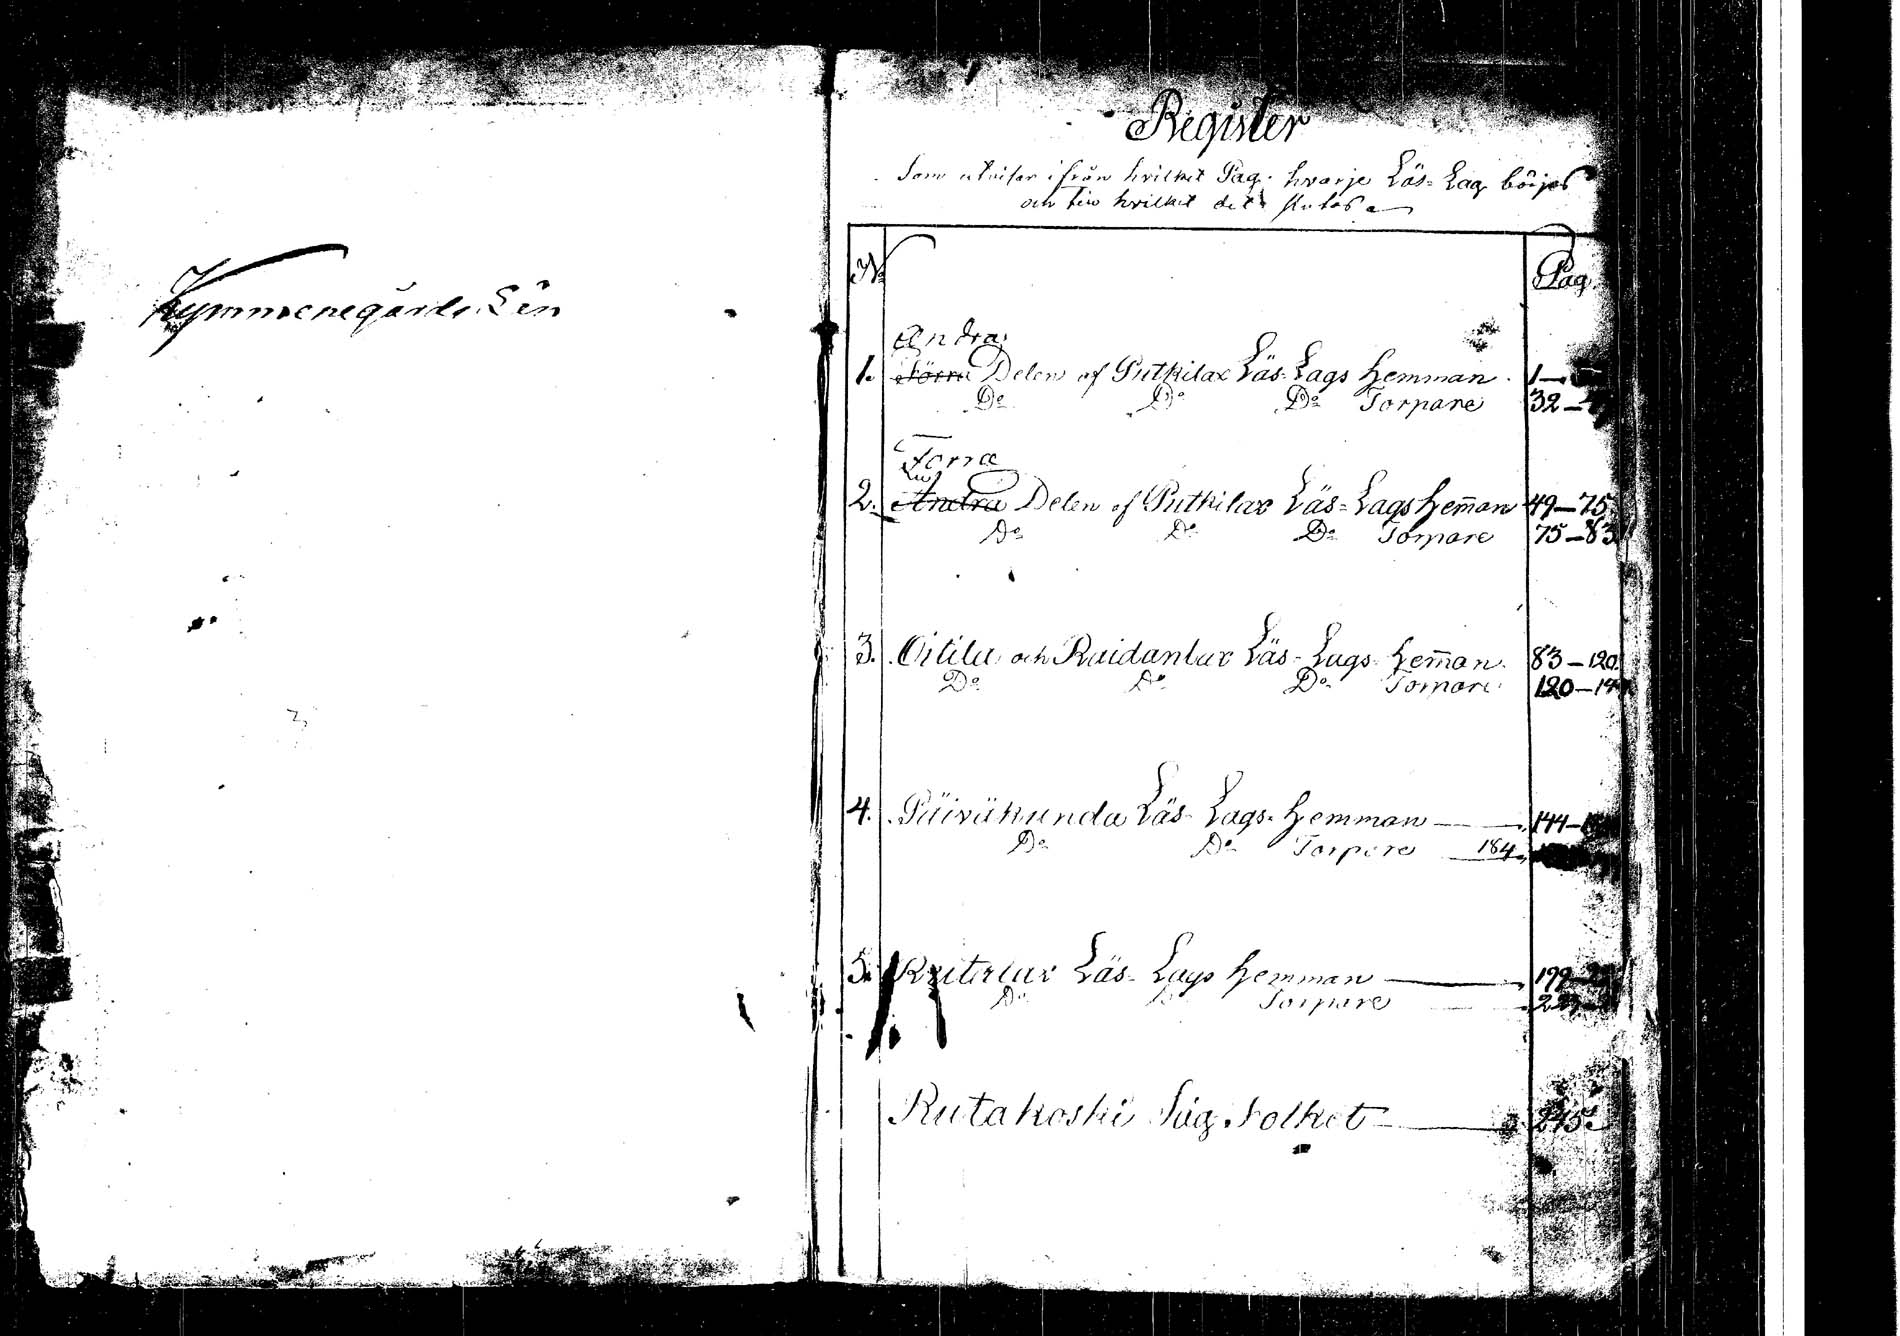 Kymmenegårds Län
Register
Som utvisar ifrån hvilket Pag. hvarje Läs-Lag börjas
och till hvilket det slutas
No Pag.
Andra
1. Förra Delen af Putkilax Läs-Lags Hemman 1—
Do Do Do Torpare 32—
Förra
2. Andra Delen af Putkilax Läs-Lags Hem̄an 49—75
Do Do Do Torpare 75—83
3. Oitila och Raidanlax Läs-Lags Hem̄an 83—120
Do Do Do Torpare 120—14
4. Päiväkunda Läs-Lags-Hemman 144—
Do Do Torpare 184
5. Läs-Lags Hemman 199—
Do Do Torpare
Rutakoski Såg Folket 245